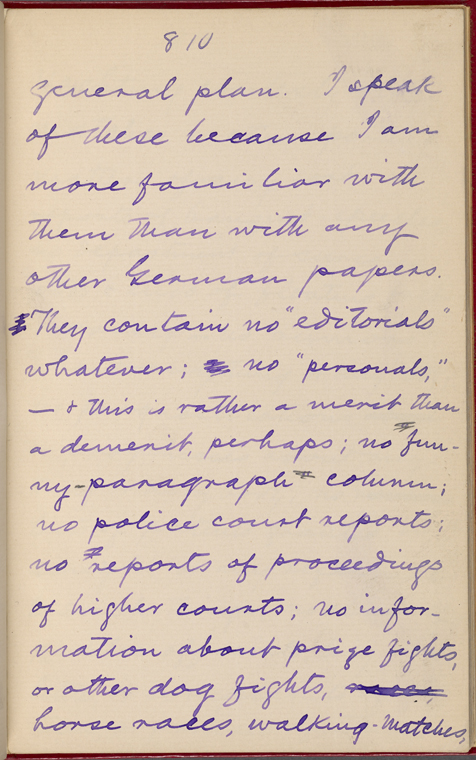 810
general plan. I speak
of these because I am
more familiar with
them than with any
other German papers.
They contain no "editorials"
whatever; no "personals,"
— & this is rather a merit than
a demerit, perhaps; no fun-
ny-paragraph column;
no police court reports;
no reports of proceedings
of higher courts; no infor-
mation about prize fights,
or other dog fights, races,
horse races, walking-matches,